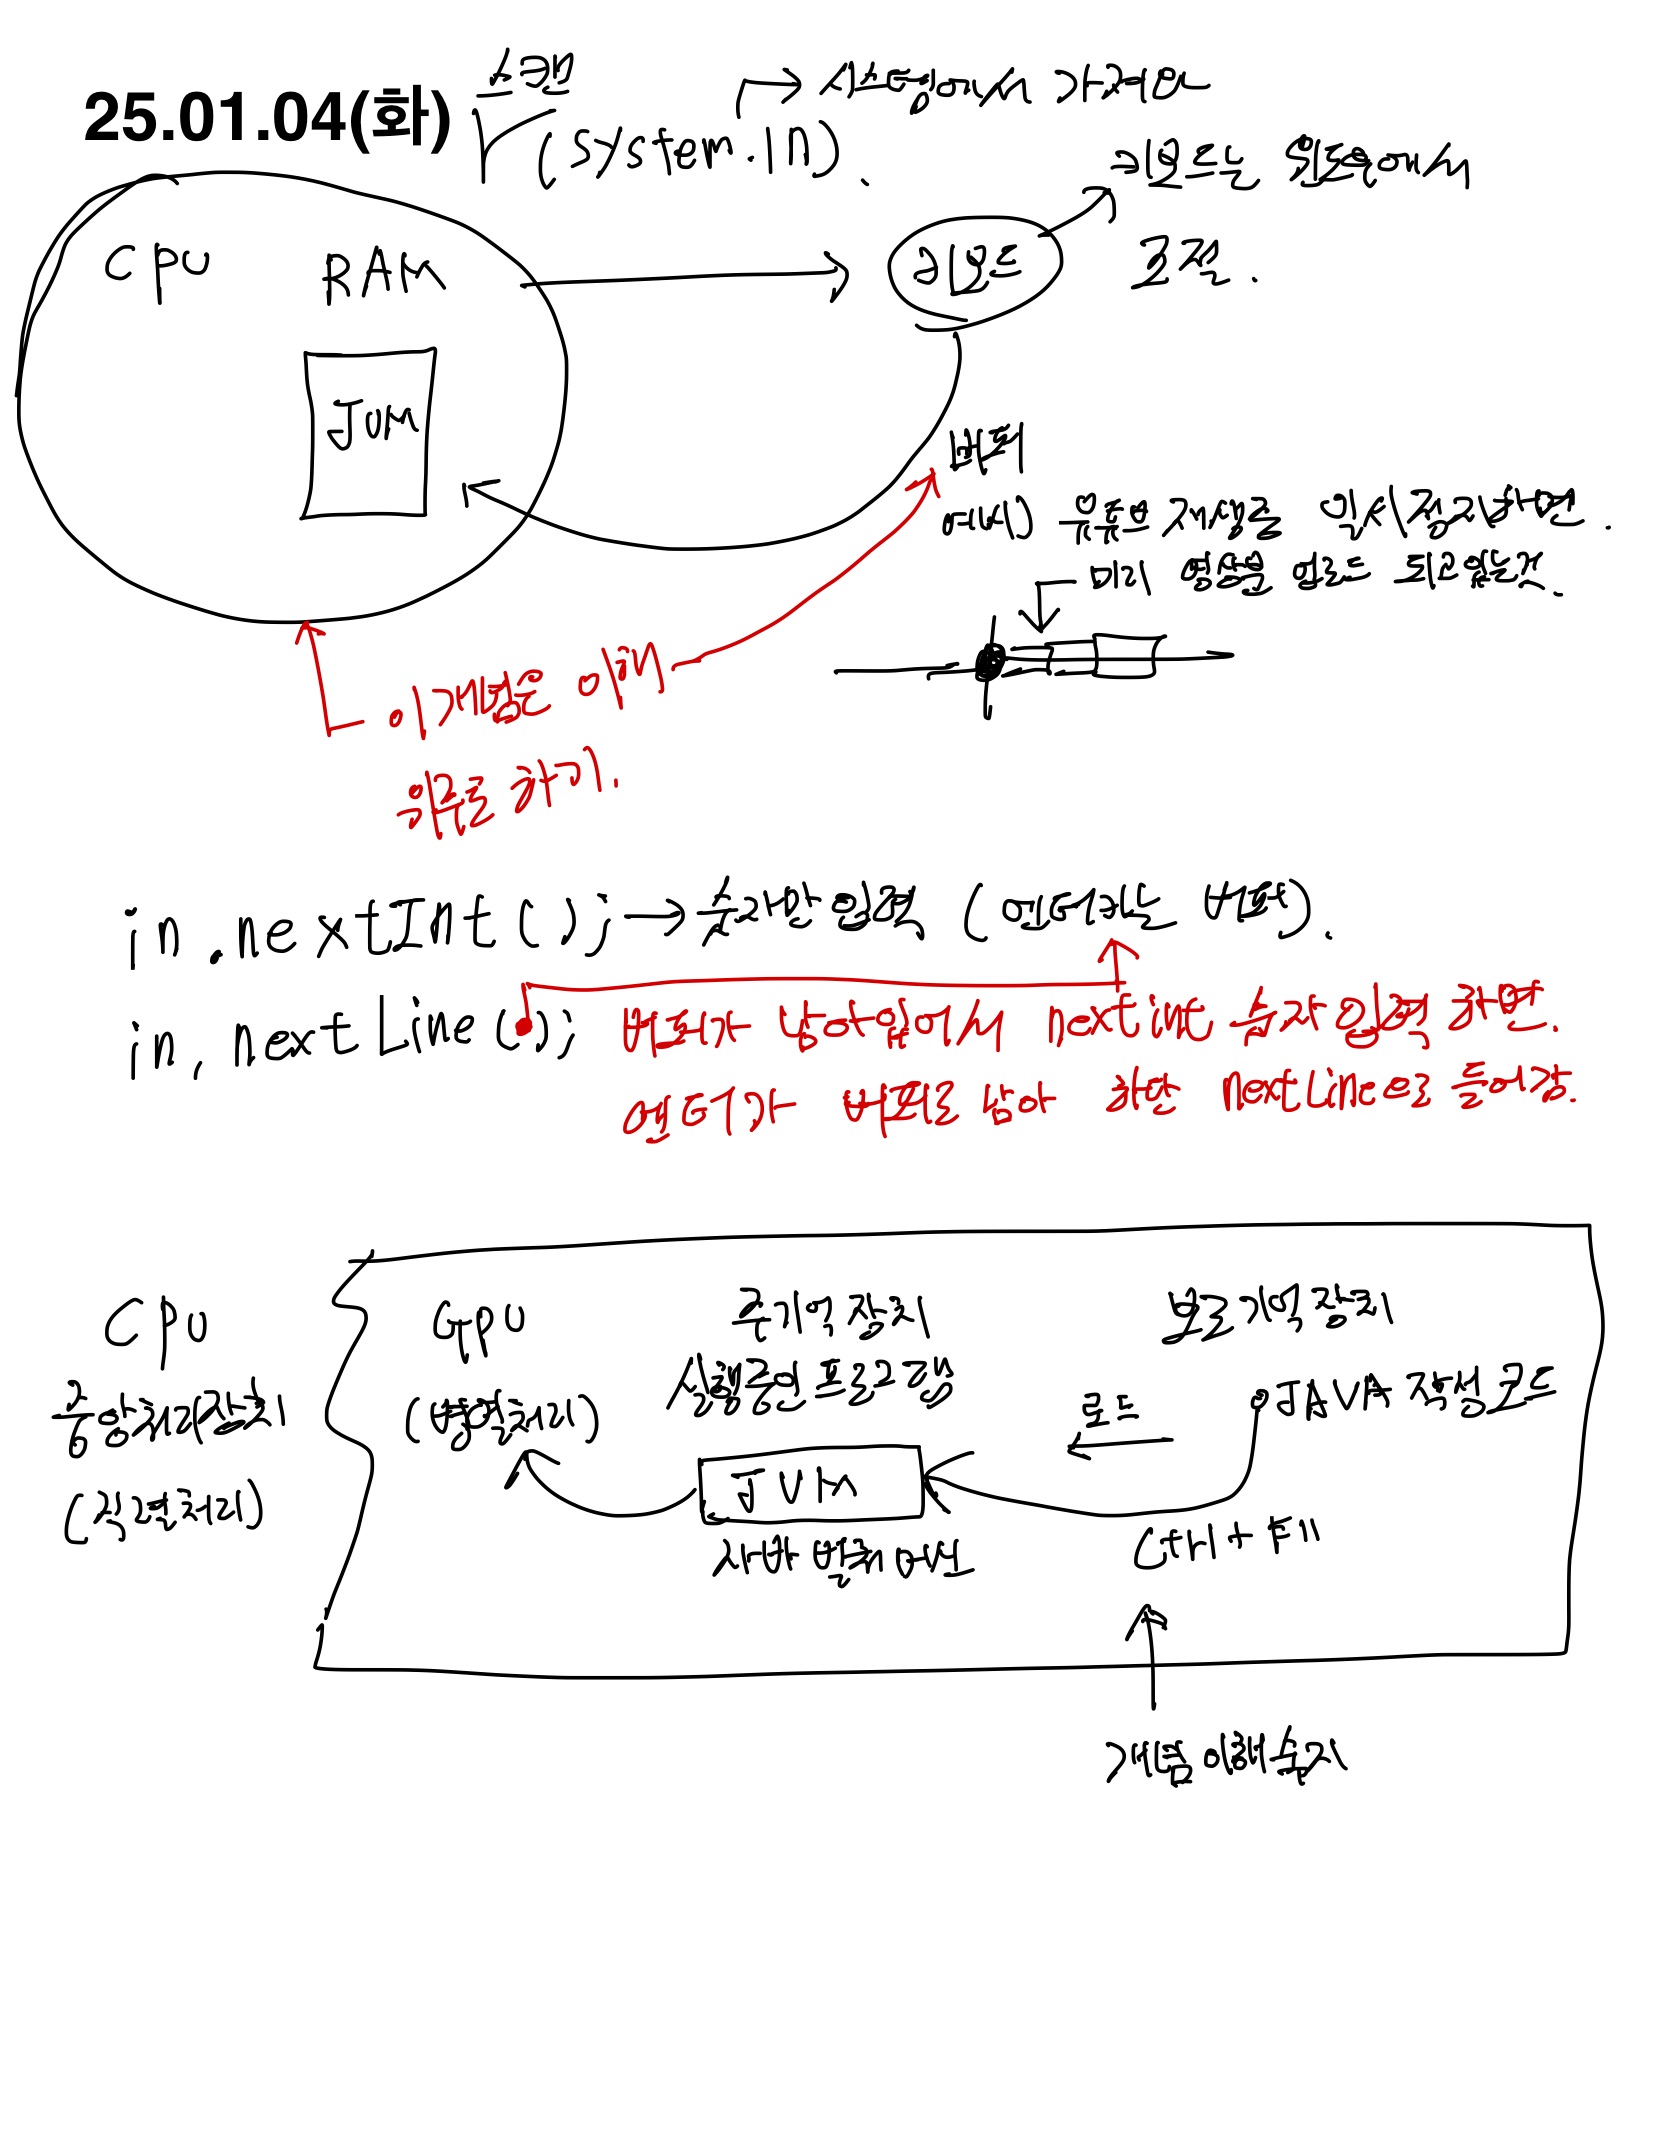 25.01.04(화)
스캔
(System.IN).
시스템에서 가져와
CPU
RAM
JVM
키보드
키보드는 윈도우에서
조절.
버퍼
예시) 유튜브 재생중 일시정지하면.
미리 영상분 업로드 되고있는것.
이개념은 이해
위주로 하기.
in.nextInt(); → 숫자만입력 (엔터키는 버퍼).
in.nextLine();
버퍼가 남아있어서 nextint 숫자입력 하면.
엔터가 버퍼로 남아 하단 nextLine으로 들어감.
CPU
중앙처리장치
(직렬처리)
GPU
(병렬처리)
주기억장치
실행중인프로그램
JVM
자바 발취머신
보조기억장치
JAVA 작성코드
로드
Ctrl + F11
개념이해숙지